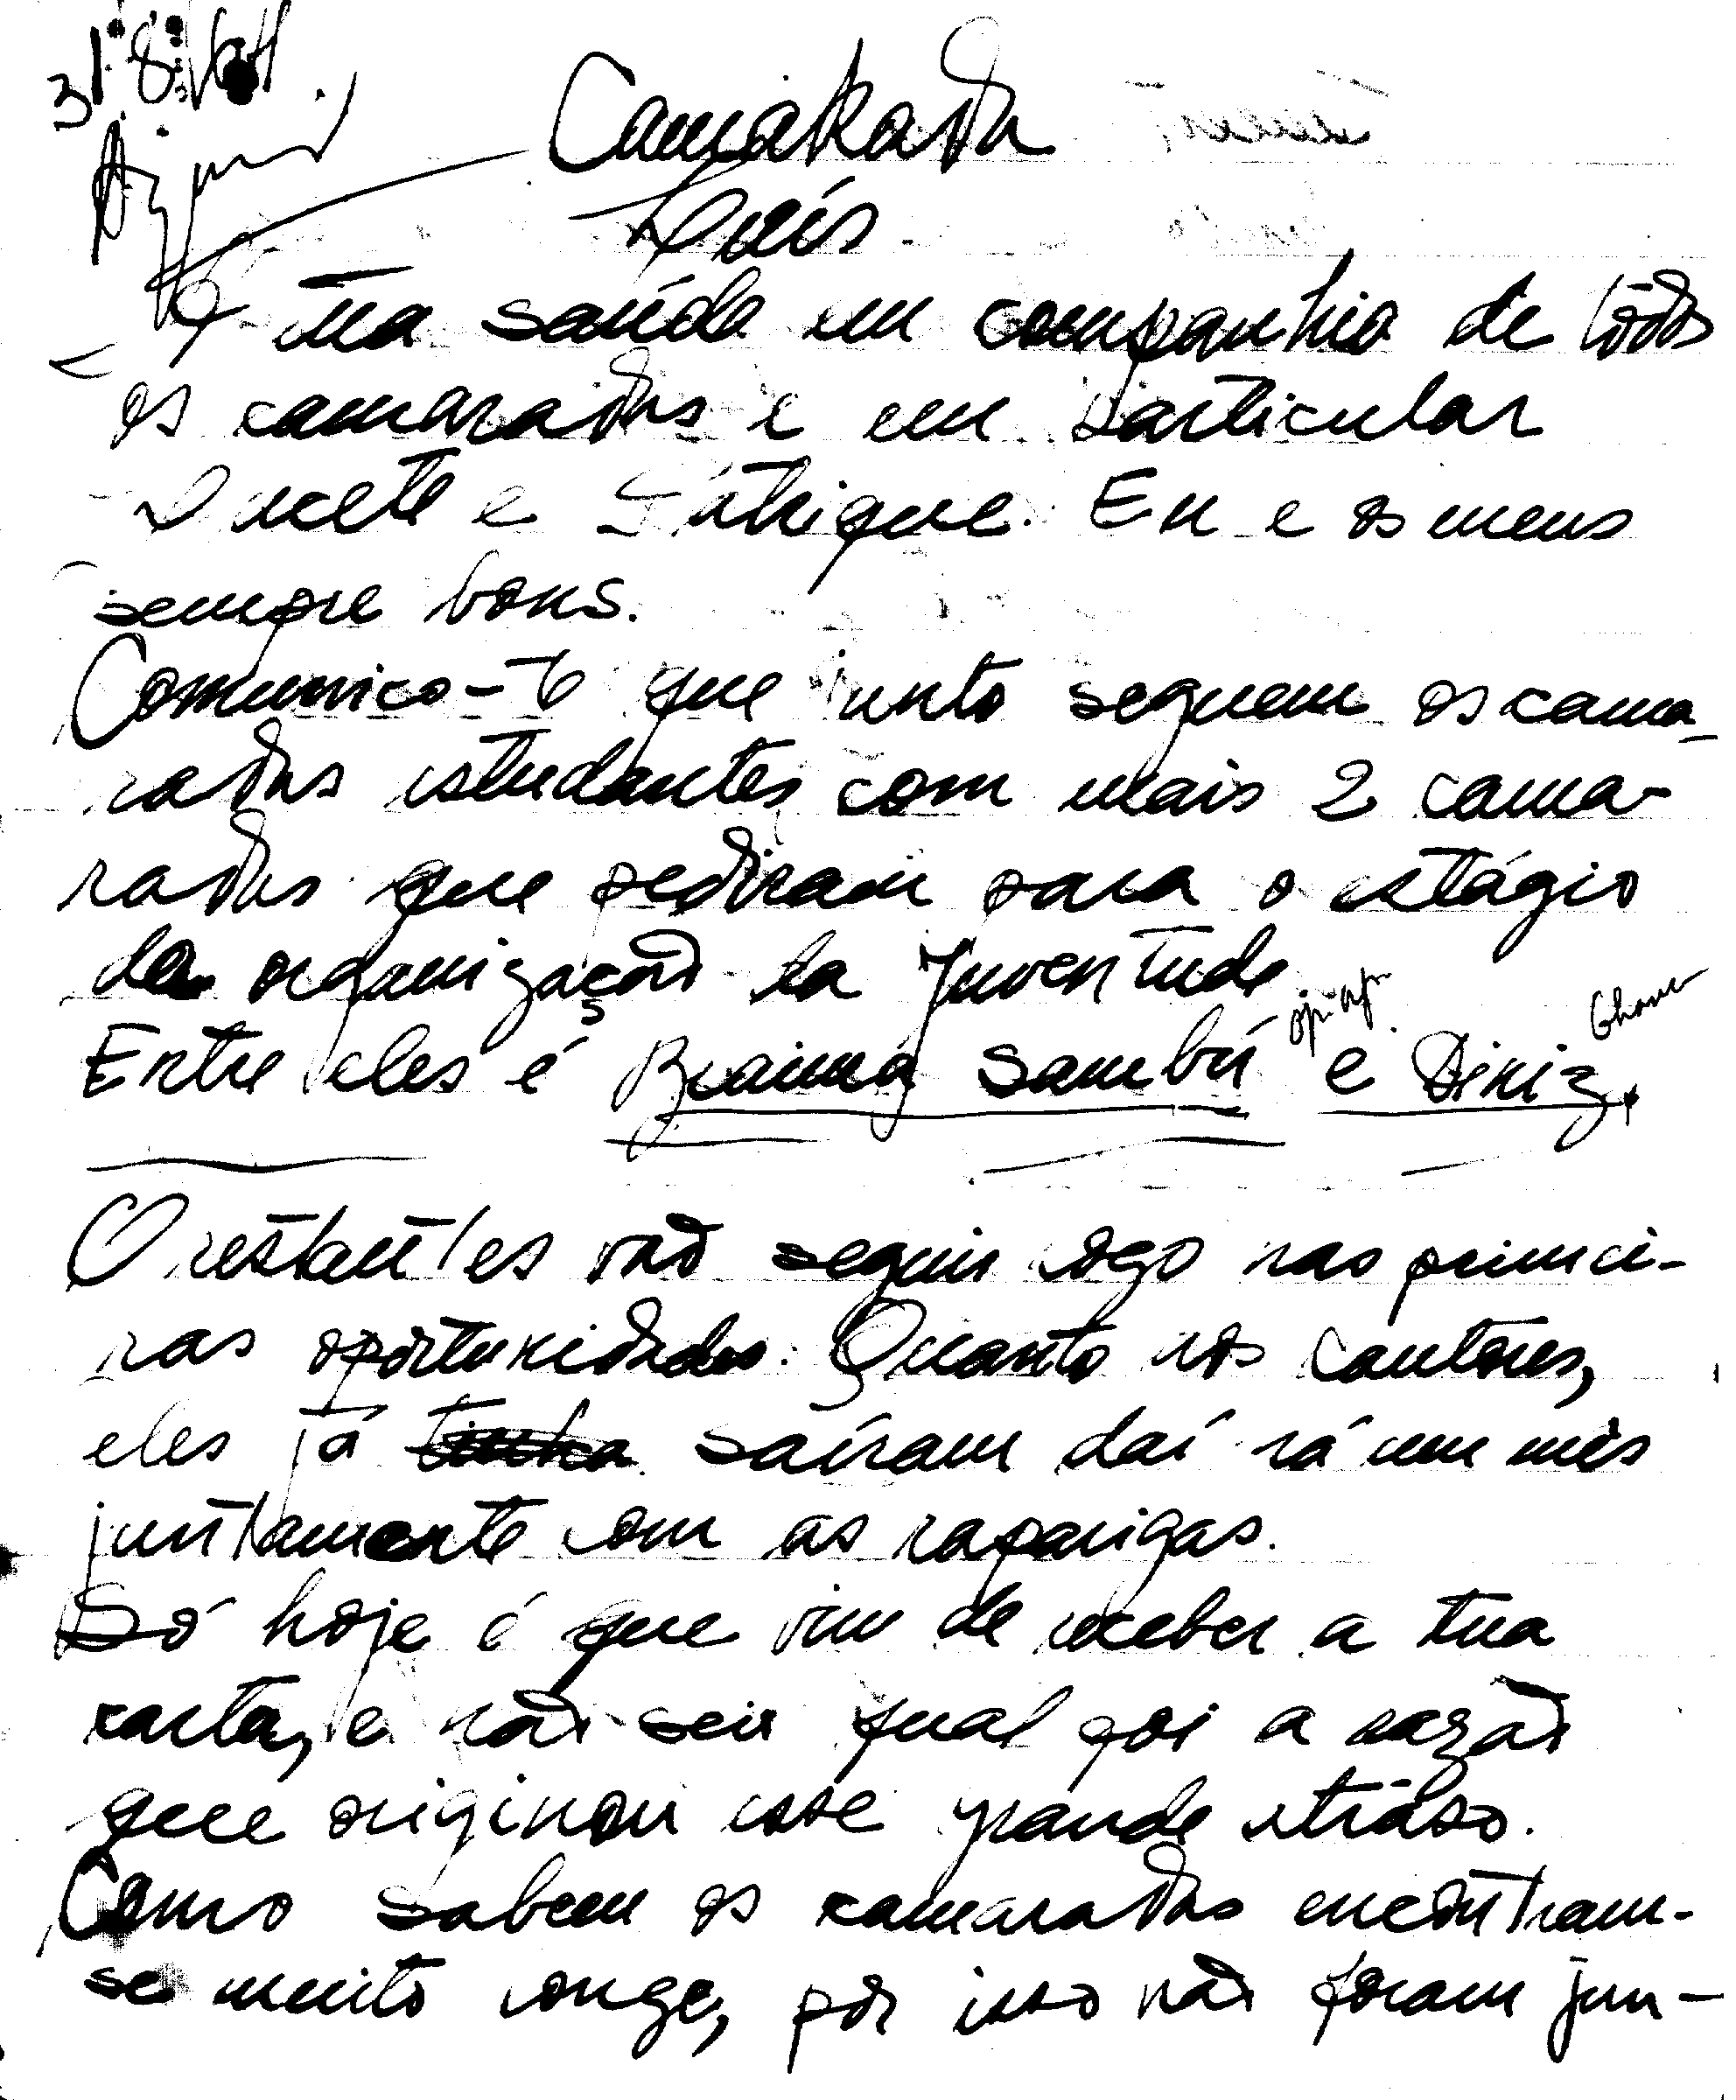 31.8.64
Camarada
Luís
A tua saúde em companhia de todos
os camaradas e em particular
Lucete e Iafrique. Eu e os meus
sempre bons.
Comunico-te que junto seguem os cama-
radas estudantes com mais 2 cama-
radas que pediram para o estágio
da organização da Juventude
Entre eles é Braima Sambú e Diniz.
O restantes vão seguir logo nas primei-
ras oportunidades. Quanto aos cantores,
eles já tinha saíram daí há um mês
juntamente com as raparigas.
Só hoje é que vim de receber a tua
carta, e não sei qual foi a razão
que originou esse grande atráso.
Como sabem os camaradas encontram-
se muito longe, por isso não foram jun-